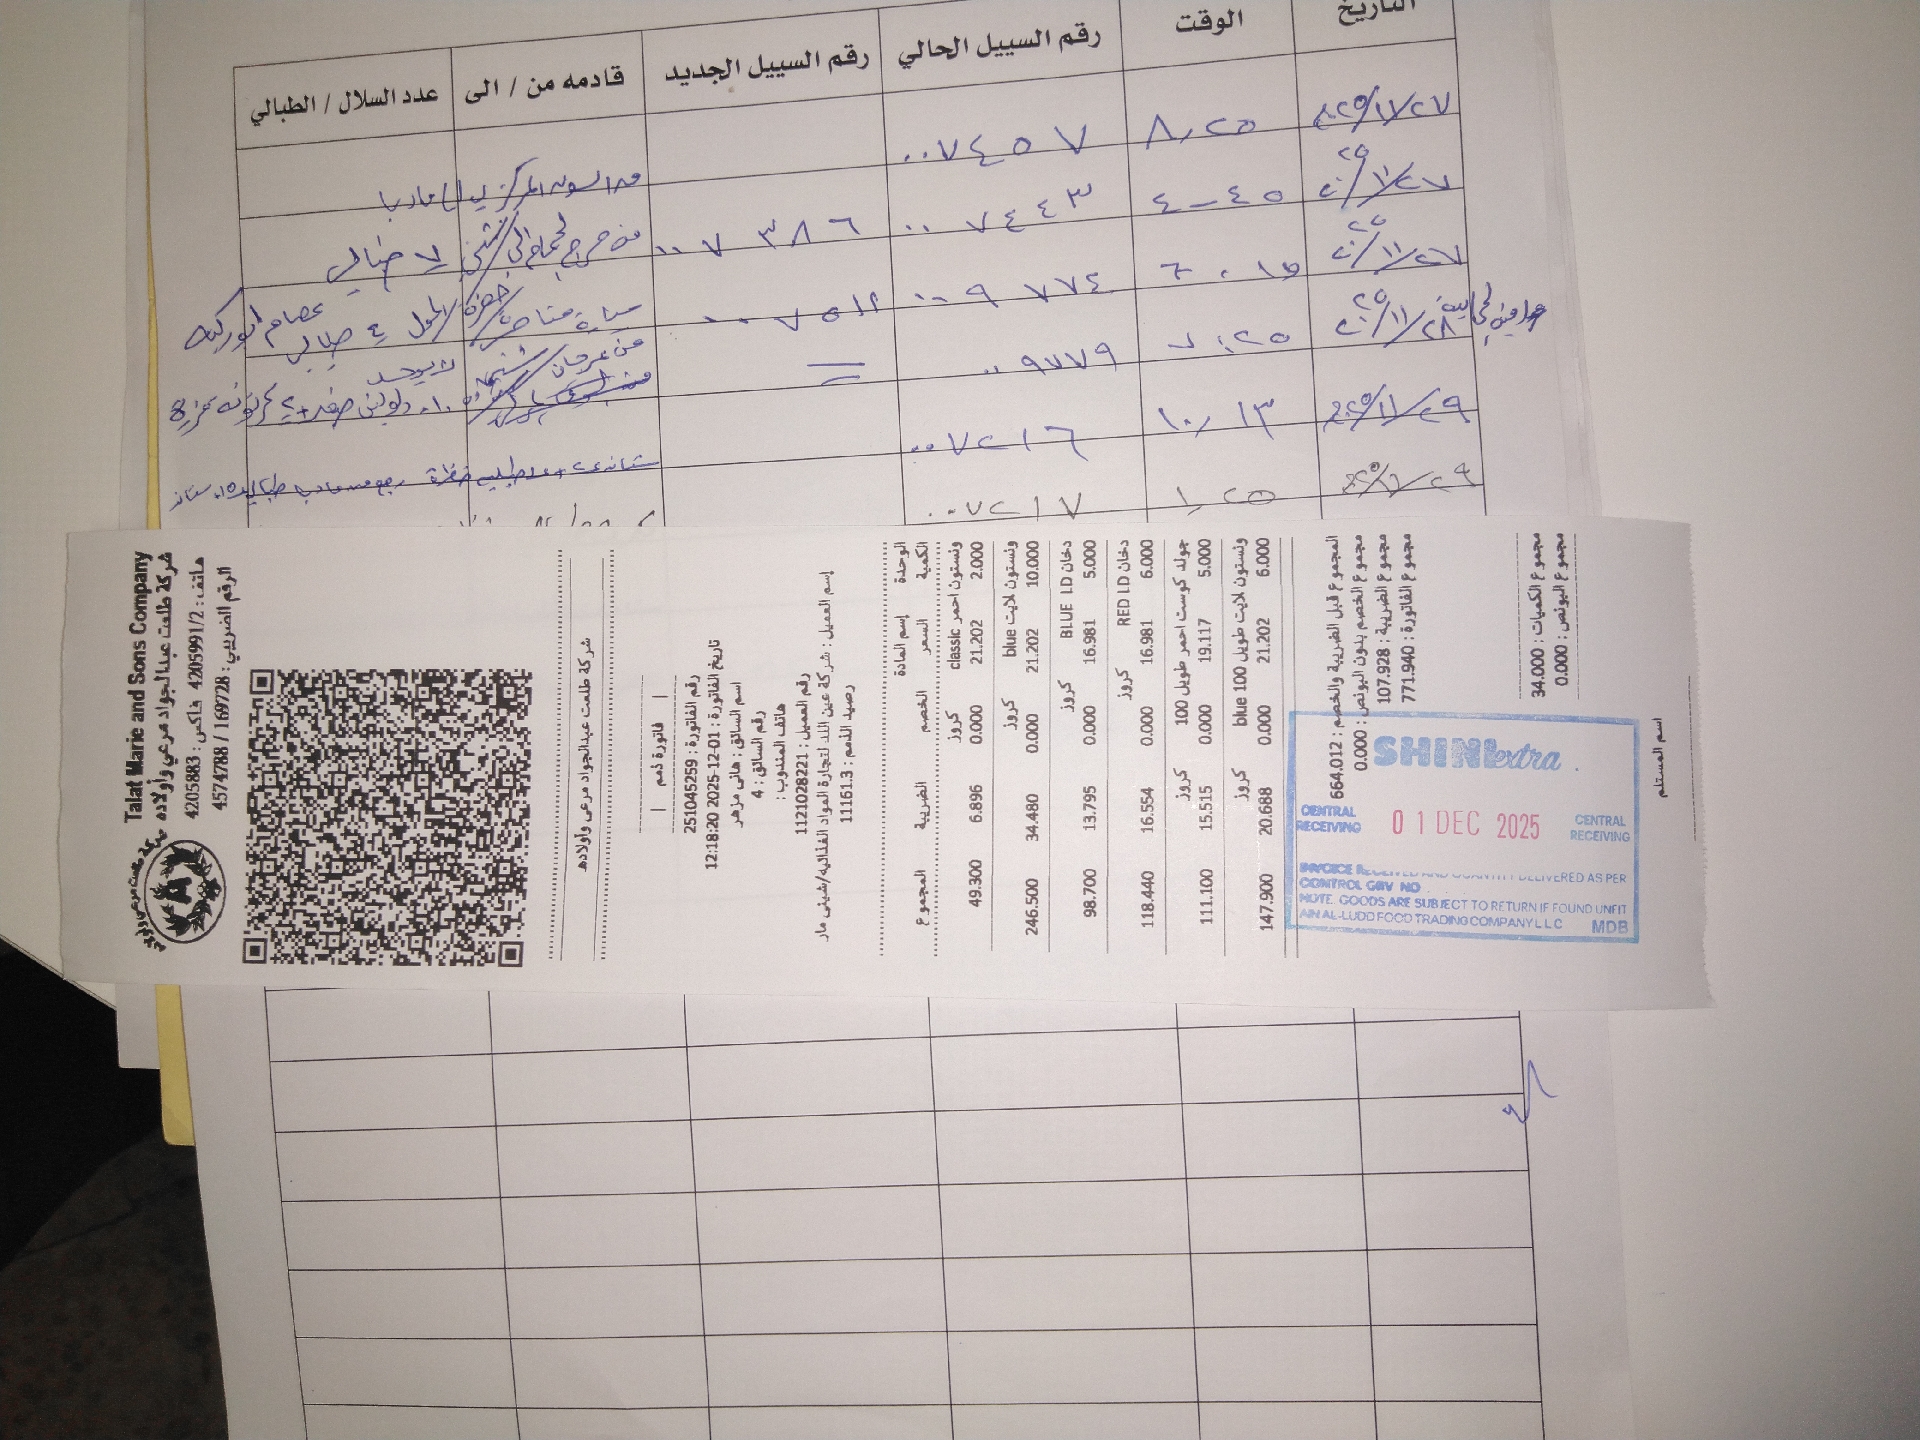 التاريخ
الوقت
رقم السييل الحالي
رقم السييل الجديد
قادمه من / الى
عدد السلال / الطبالي
٢٠٢٥/١١/٢٧
٨,٢٥
٠٠٧٤٥٧
٢٠٢٥/١١/٢٧
٤-٤٥
٠٠٧٤٤٣
٠٠٧٣٨٦
٢٠٢٥/١١/٢٧
٦.١٥
٠٠٩٧٧٤
٠٠٧٥١٢
٢٠٢٥/١١/٢٨
٧:٢٥
٠٠٩٧٧٩
٢٠٢٥/١١/٢٩
١٠,١٣
٠٠٧٢١٦
٢٠٢٥/١١/٢٩
١,٢٥
٠٠٧٢١٧
Talat Marie and Sons Company
شركة طلعت عبدالجواد مرعي وأولاده
هاتف : 4205991/2 فاكس : 4205883
الرقم الضريبي : 169728 / 4574788
شركة طلعت عبدالجواد مرعى واولاده
| فاتورة ذمم |
رقم الفاتورة : 251045259
تاريخ الفاتورة : 01-12-2025 12:18:20
اسم السائق : هانى مزهر
رقم السائق : 4
هاتف المندوب :
رقم العميل : 1121028221
إسم العميل : شركة عين اللد لتجارة المواد الغذائيه/شينى مار
رصيد الذمم : 11161.3
الوحدة إسم المادة
الكمية السعر الخصم الضريبة المجموع
ونستون احمر classic كروز
2.000 21.202 0.000 6.896 49.300
ونستون لايت blue كروز
10.000 21.202 0.000 34.480 246.500
دخان BLUE LD كروز
5.000 16.981 0.000 13.795 98.700
دخان RED LD كروز
6.000 16.981 0.000 16.554 118.440
جولد كوست احمر طويل 100 كروز
5.000 19.117 0.000 15.515 111.100
ونستون لايت طويل 100 blue كروز
6.000 21.202 0.000 20.688 147.900
المجموع قبل الضريبة والخصم : 664.012
مجموع الخصم بدون البونص : 0.000
مجموع الضريبة : 107.928
مجموع الفاتورة : 771.940
مجموع الكميات : 34.000
مجموع البونص : 0.000
اسم المستلم
SHINI extra
CENTRAL RECEIVING
0 1 DEC 2025
CENTRAL RECEIVING
INVOICE RECEIVED AND QUANTITY DELIVERED AS PER
CONTROL GRV NO
NOTE. GOODS ARE SUBJECT TO RETURN IF FOUND UNFIT
AIN AL-LUDD FOOD TRADING COMPANY LLC MDB